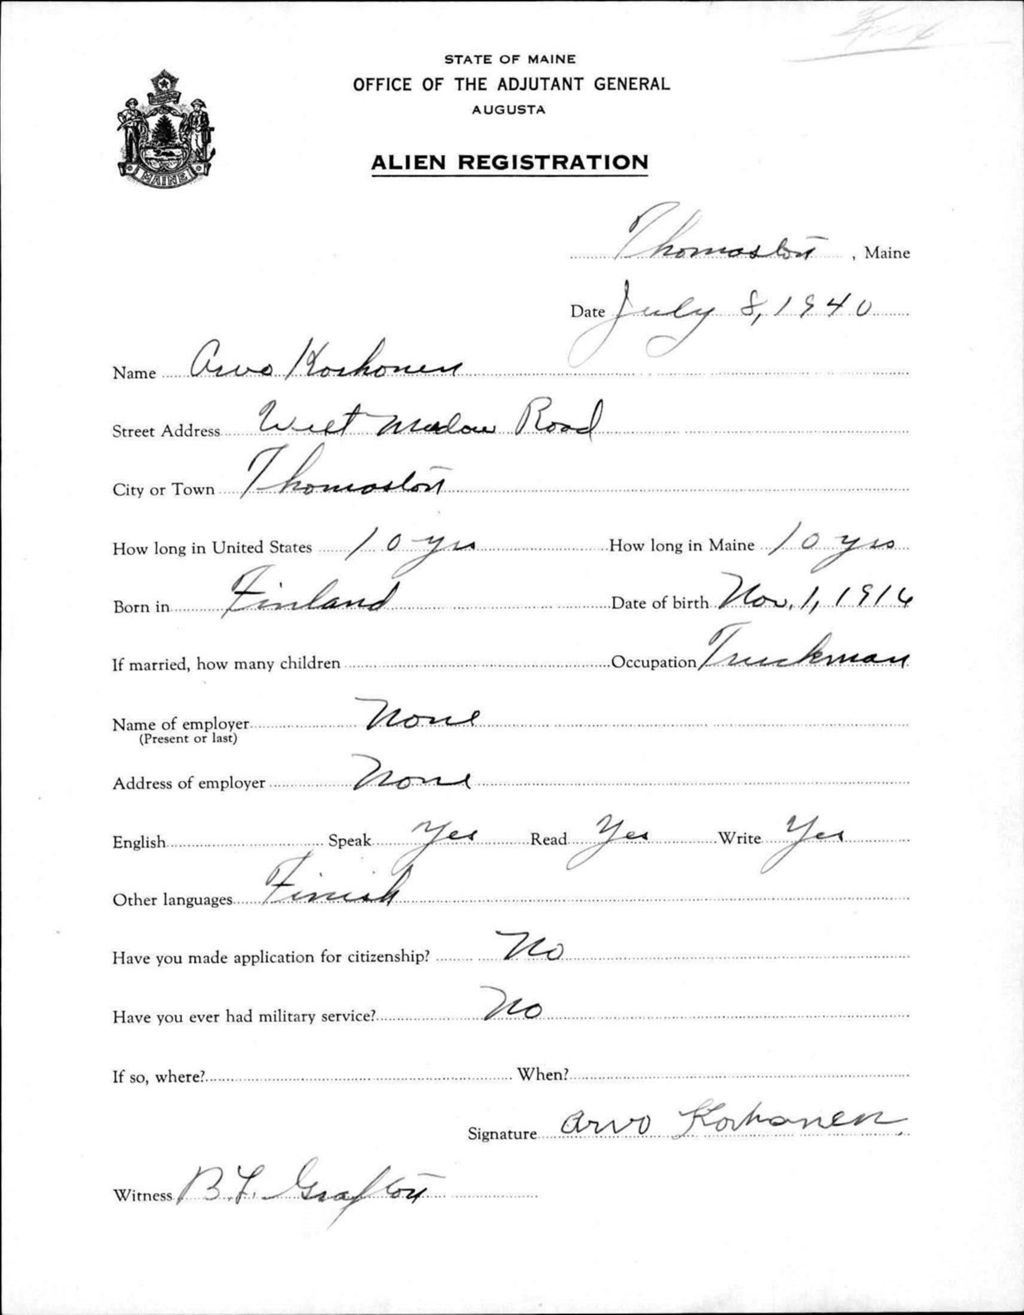 STATE OF MAINE
OFFICE OF THE ADJUTANT GENERAL
AUGUSTA
ALIEN REGISTRATION
MAINE
Thomaston, Maine
Date July 8, 1940
Name Arvo Korhonen
Street Address West Meadow Road
City or Town Thomaston
How long in United States 10 yrs How long in Maine 10 yrs
Born in Finland Date of birth Nov. 1, 1916
If married, how many children Occupation Truckman
Name of employer None
(Present or last)
Address of employer None
English Speak Yes Read Yes Write Yes
Other languages Finish
Have you made application for citizenship? No
Have you ever had military service? No
If so, where? When?
Signature Arvo Korhonen
Witness B.F. Grafton